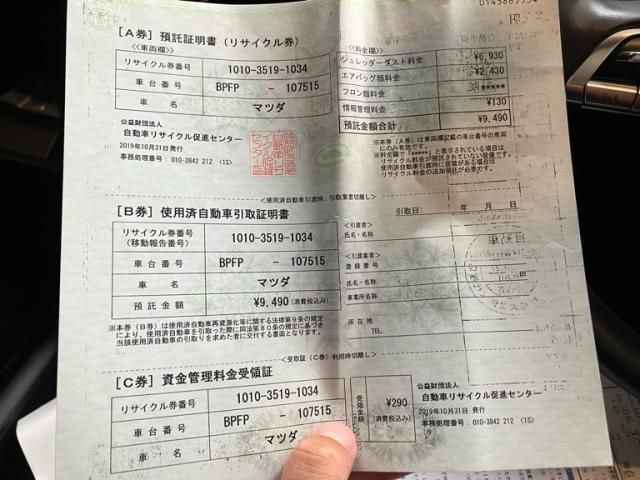 [A券] 預託証明書 (リサイクル券)
≪車両欄≫
リサイクル券番号 1010-3519-1034
車台番号 BPFP - 107515
車名 マツダ
公益財団法人
自動車リサイクル促進センター
2019年10月31日発行
事務処理番号:010-3842 212 <1S>
≪料金欄≫
シュレッダーダスト料金 ¥6,930
エアバッグ類料金 ¥2,430
フロン類料金
情報管理料金 ¥130
預託金額合計 ¥9,490
※本券(A券)は車両欄記載の車台番号の車両
にのみ有効です。
<使用済自動車引渡時、引取業者切離し>
[B券] 使用済自動車引取証明書
リサイクル券番号
(移動報告番号) 1010-3519-1034
車台番号 BPFP - 107515
車名 マツダ
預託金額 ¥9,490 (消費税込み)
※本券(B券)は使用済自動車再資源化等に関する法律第9条の規定
により、使用済自動車を引取った際に同法第80条の規定に基づき
当該使用済自動車の引取りを求めた者に交付する書面となります。
引取日: 年 月 日
<引渡者>
氏名・名称
<引取業者>
登録番号
氏名・名称
事業所名称
所在地
TEL
<受取証(C券)利用時切離し>
[C券] 資金管理料金受領証
リサイクル券番号 1010-3519-1034
車台番号 BPFP - 107515
車名 マツダ
受領金額 ¥290
(消費税込み)
公益財団法人
自動車リサイクル促進センター
2019年10月31日 発行
事務処理番号:010-3842 212 <1S>